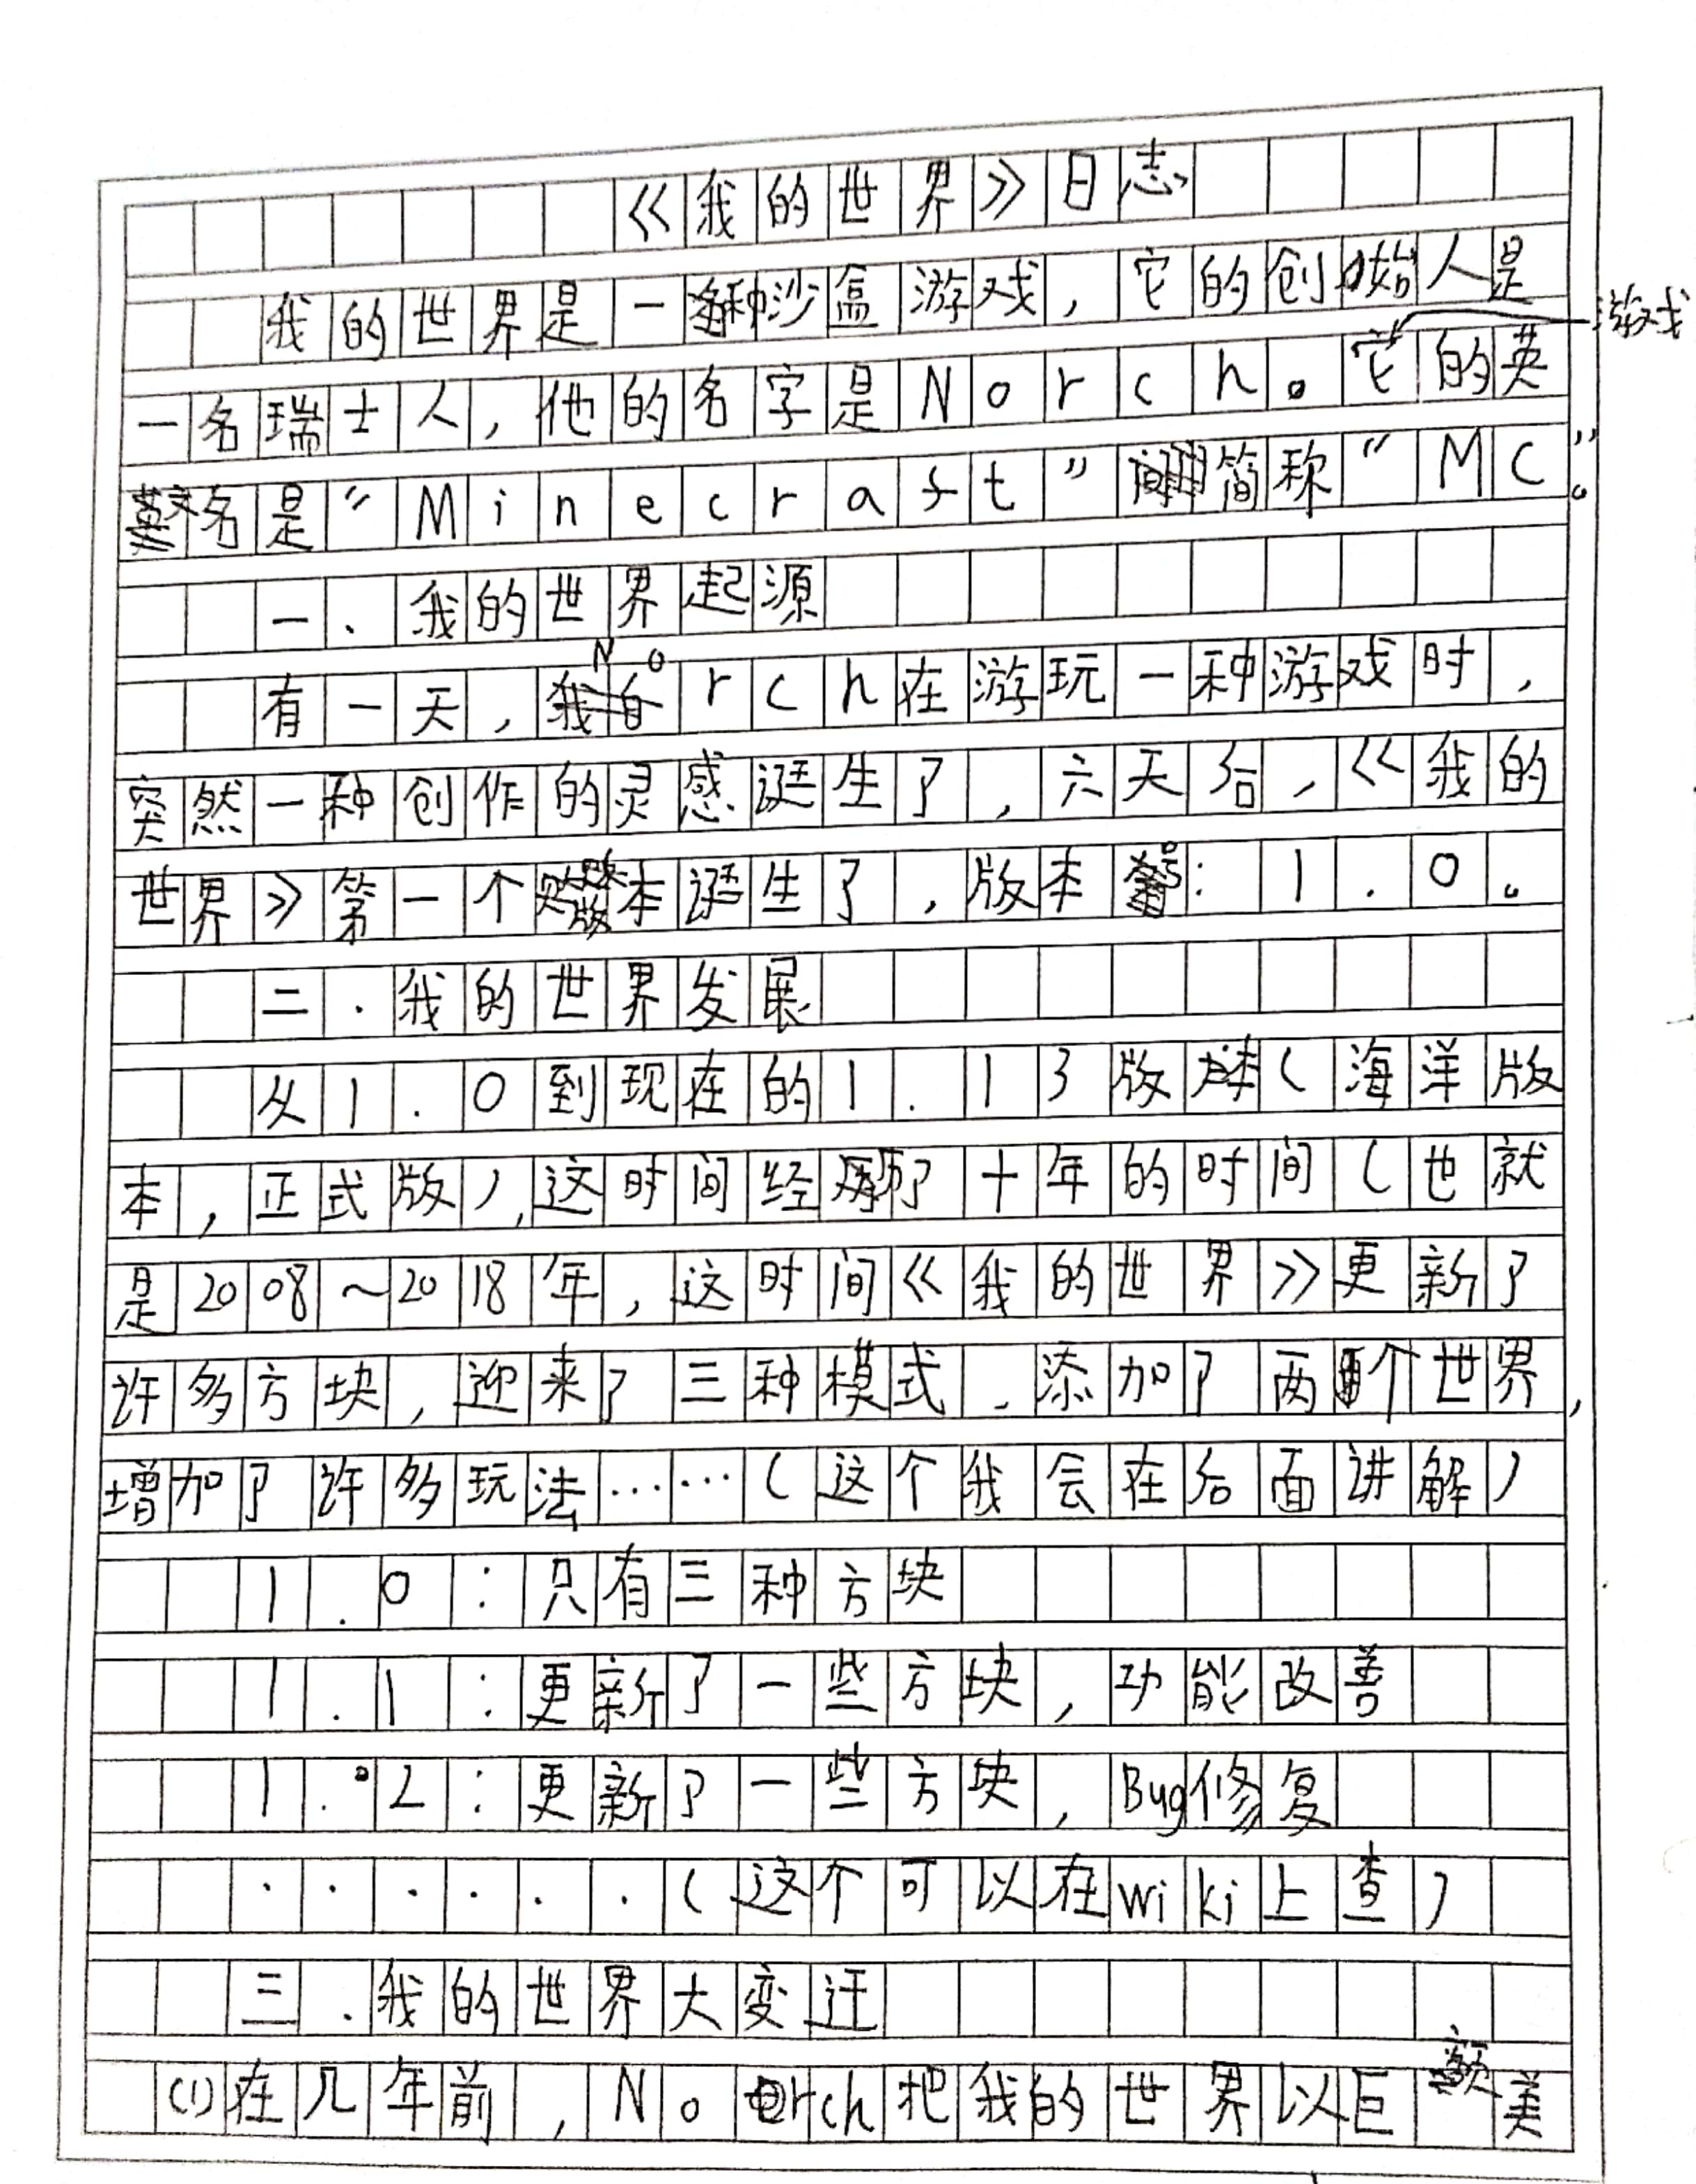 《我的世界》日志
我的世界是一种沙盒游戏，它的创始人是
游戏
一名瑞士人，他的名字是Norch。它的英
文名是“Minecraft”简称“MC”。
一、我的世界起源
有一天，Norch在游玩一种游戏时，
突然一种创作的灵感诞生了，六天后，《我的
世界》第一个版本诞生了，版本号：1.0。
二.我的世界发展
从1.0到现在的1.13版本（海洋版
本，正式版），这时间经历了十年的时间（也就
是2008~2018年，这时间《我的世界》更新了
许多方块，迎来了三种模式，添加了两个世界，
增加了许多玩法……（这个我会在后面讲解）
1.0：只有三种方块
1.1：更新了一些方块，功能改善
1.2：更新了一些方块，Bug修复
······（这个可以在wiki上查）
三.我的世界大变迁
(1)在几年前，Norch把我的世界以巨额美